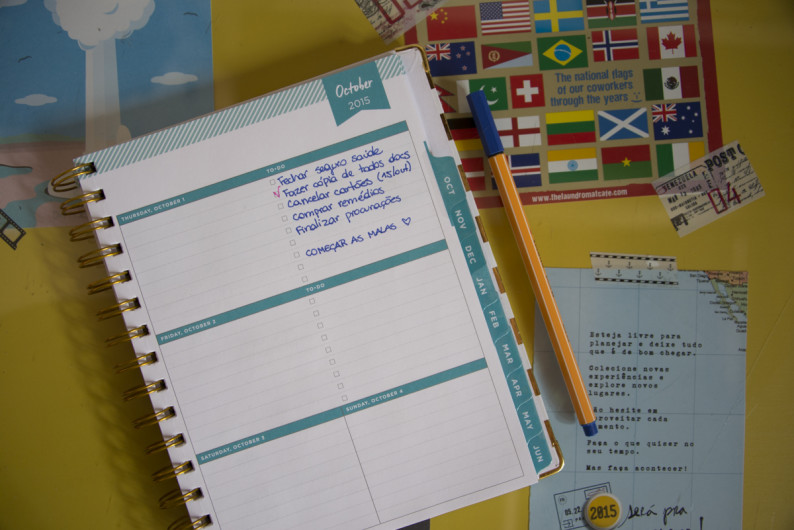 October
2015
THURSDAY, OCTOBER 1
TO-DO
Fechar seguro saúde
Fazer cópia de todos docs
Cancelar cartões (15/out)
Comprar remédios
Finalizar procurações
COMEÇAR AS MALAS ♡
FRIDAY, OCTOBER 2
TO-DO
SATURDAY, OCTOBER 3
SUNDAY, OCTOBER 4
OCT
NOV
DEC
JAN
FEB
MAR
APR
MAY
JUN
The national flags
of our coworkers
through the years
www.thelaundromatcafe.com
VENEZUELA
POST
04
Esteja livre para
planejar e deixe tudo
que é de bom chegar.
Colecione novas
experiências e
explore novos
lugares.
Não hesite em
aproveitar cada
momento.
Faça o que quiser no
seu tempo.
Mas faça acontecer!
2015
será pra